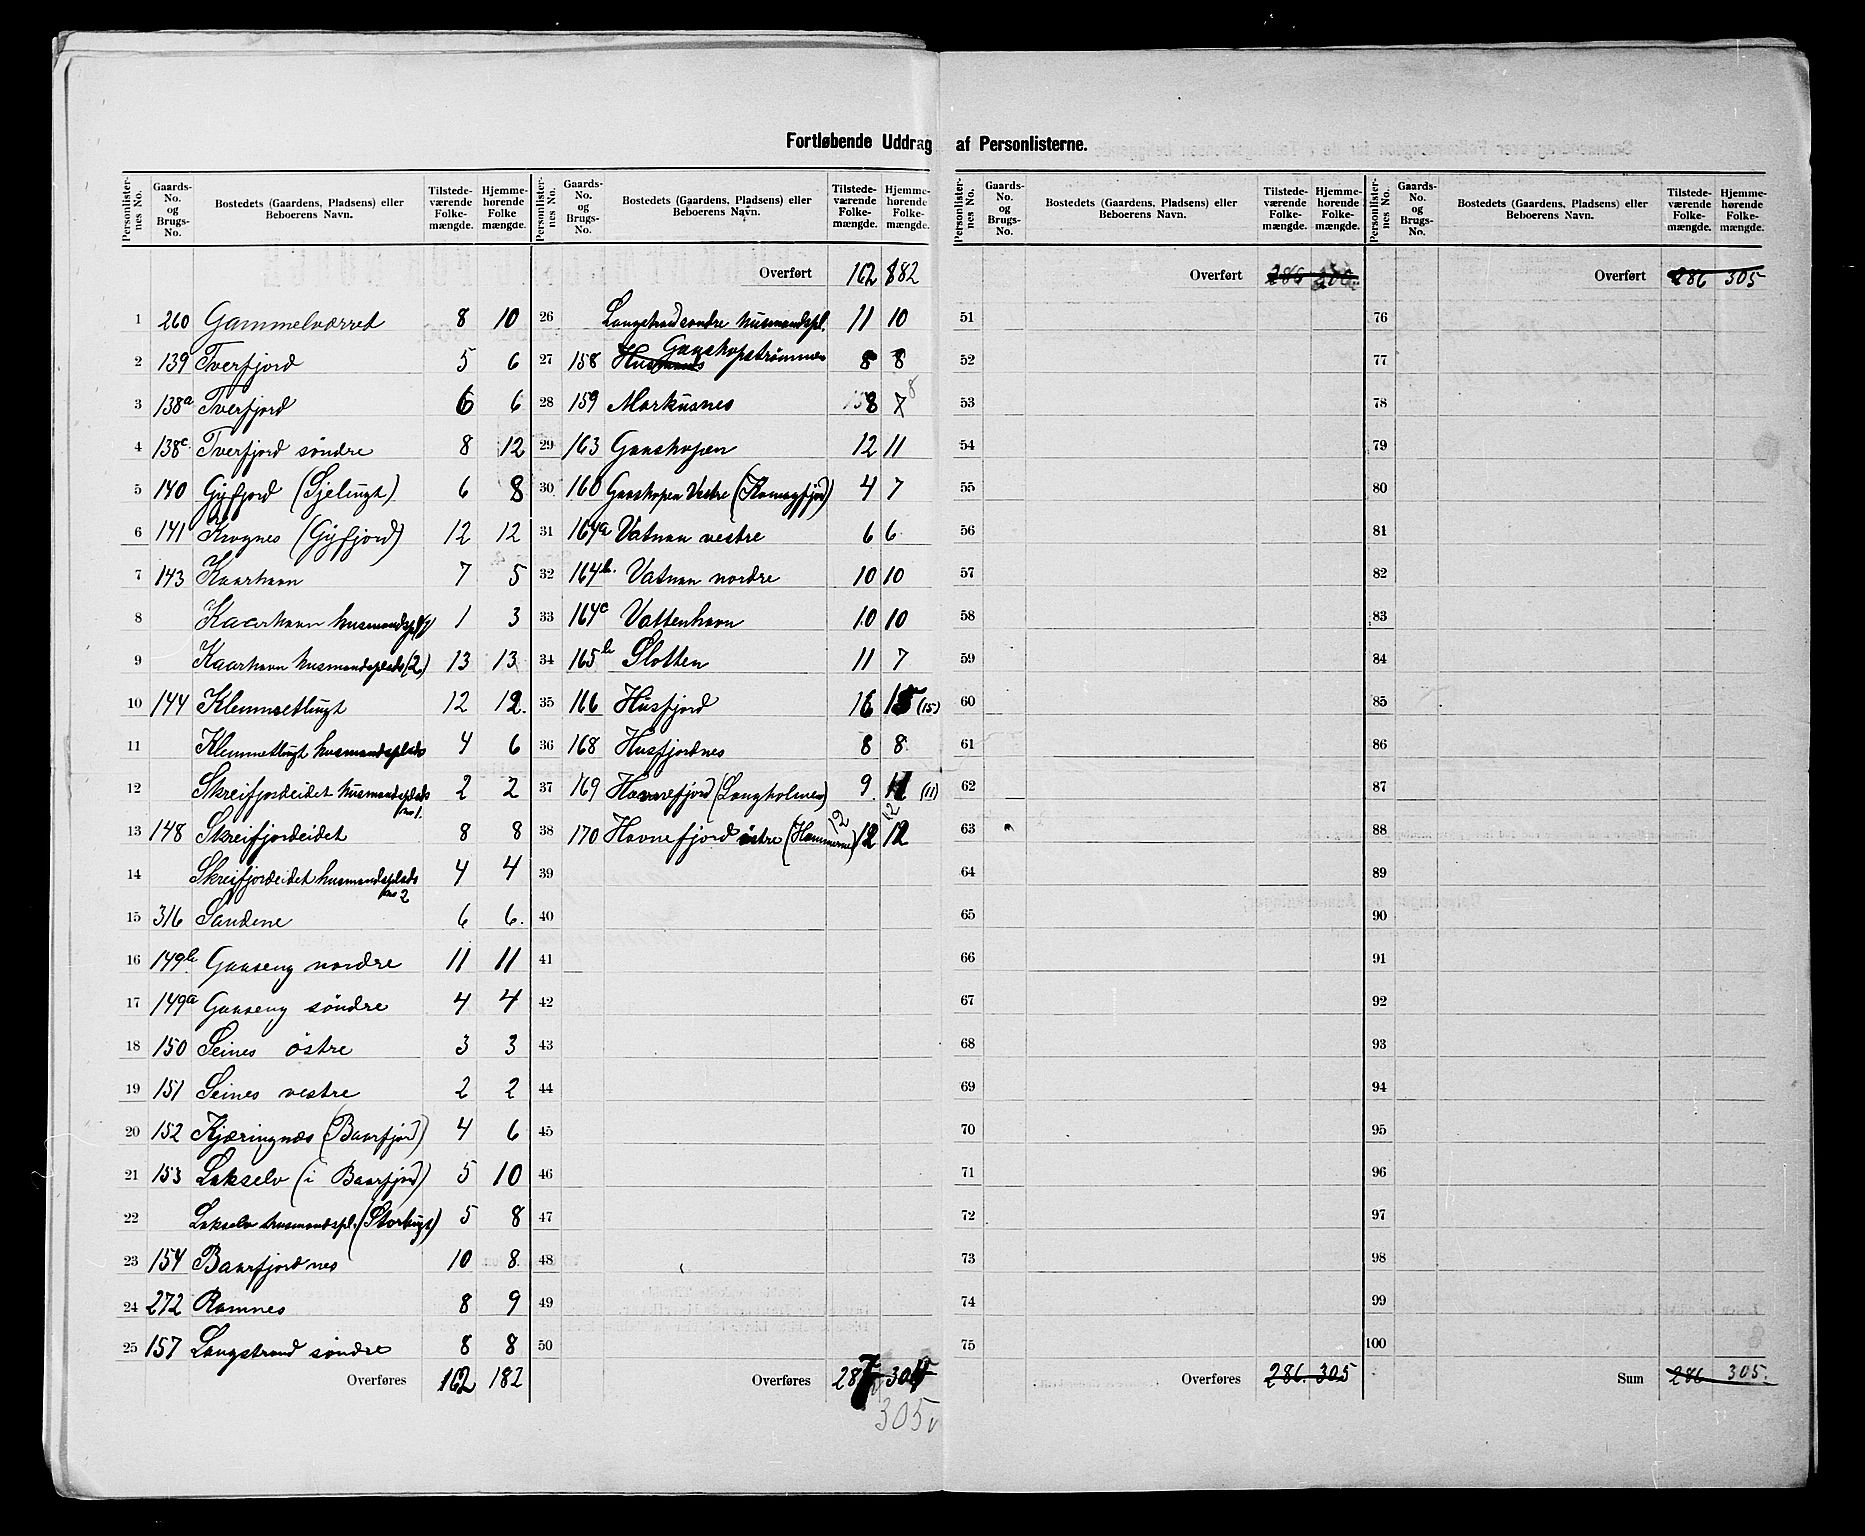 Fortløbende Uddrag af Personlisterne.
Personlister-nes No. | Gaards-No. og Brugs-No. | Bostedets (Gaardens, Pladsens) eller Beboerens Navn. | Tilstede-værende Folke-mængde. | Hjemme-hørende Folke mængde.
1 260 Gammelværret 8 10
2 139 Tverfjord 5 6
3 138a Tverfjord 6 6
4 138c Tverfjord söndre 8 12
5 140 Gyfjord (Sjelugt) 6 8
6 141 Krognes (Gyfjord) 12 12
7 143 Kaarhavn 7 5
8 Kaarhavn husmandspl(1) 1 3
9 Kaarhavn husmandsplads (2) 13 13
10 144 Klemmetlugt 12 12.
11 Klemmetlugt husmandsplads 4 6
12 Skreifjordeidet husmandsplads no 1. 2 2
13 148 Skreifjordeidet 8 8
14 Skreifjordeidet husmandsplads no 2 4 4
15 316 Sandene 6 6.
16 149b Gaaseng nordre 11 11
17 149a Gaaseng söndre 4 4
18 150 Seines östre 3 3
19 151 Seines vestre 2 2
20 152 Kjæringnæs (Baarfjord) 4 6
21 153 Lakselv (i Baarfjord) 5 10
22 Lakselv husmandspl. (Storlugt) 5 8
23 154 Baarfjordnes 10 8.
24 272 Ramnes 8 9
25 157 Langstrand söndre 8 8
Overføres 162 182
Personlister-nes No. | Gaards-No. og Brugs-No. | Bostedets (Gaardens, Pladsens) eller Beboerens Navn. | Tilstede-værende Folke-mængde. | Hjemme-hørende Folke-mængde.
Overført 162 182
26 Langstrand söndre husmandspl. 11 10
27 158 Husmands Gaashopströmmen 8 8
28 159 Markusnes 8 7 8
29 163 Gaashopen 12 11
30 160 Gaashopen Vestre (Komagfjord) 4 7
31 164a Vatnan vestre 6 6
32 164b. Vatnan nordre 10 10
33 164c Vattenhavn 10 10
34 165b Slotten 11 7
35 166 Husfjord 16 15 (15)
36 168 Husfjordnes 8 8
37 169 Havnefjord (Langholmen) 9. 11 (11)
38 170 Havnefjord östre (Hammerne) 12 12 12 12
39
40
41
42
43
44
45
46
47
48
49
50
Overføres 287 304
305
Personlister-nes No. | Gaards-No. og Brugs-No. | Bostedets (Gaardens, Pladsens) eller Beboerens Navn. | Tilstede-værende Folke-mængde. | Hjemme-hørende Folke-mængde.
Overført 286
51
52
53
54
55
56
57
58
59
60
61
62
63
64
65
66
67
68
69
70
71
72
73
74
75
Overføres 286. 305
Personlister-nes No. | Gaards-No. og Brugs-No. | Bostedets (Gaardens, Pladsens) eller Beboerens Navn. | Tilstede-værende Folke-mængde. | Hjemme-hørende Folke-mængde.
Overført 286 305
76
77
78
79
80
81
82
83
84
85
86
87
88
89
90
91
92
93
94
95
96
97
98
99
100
Sum 286 305.